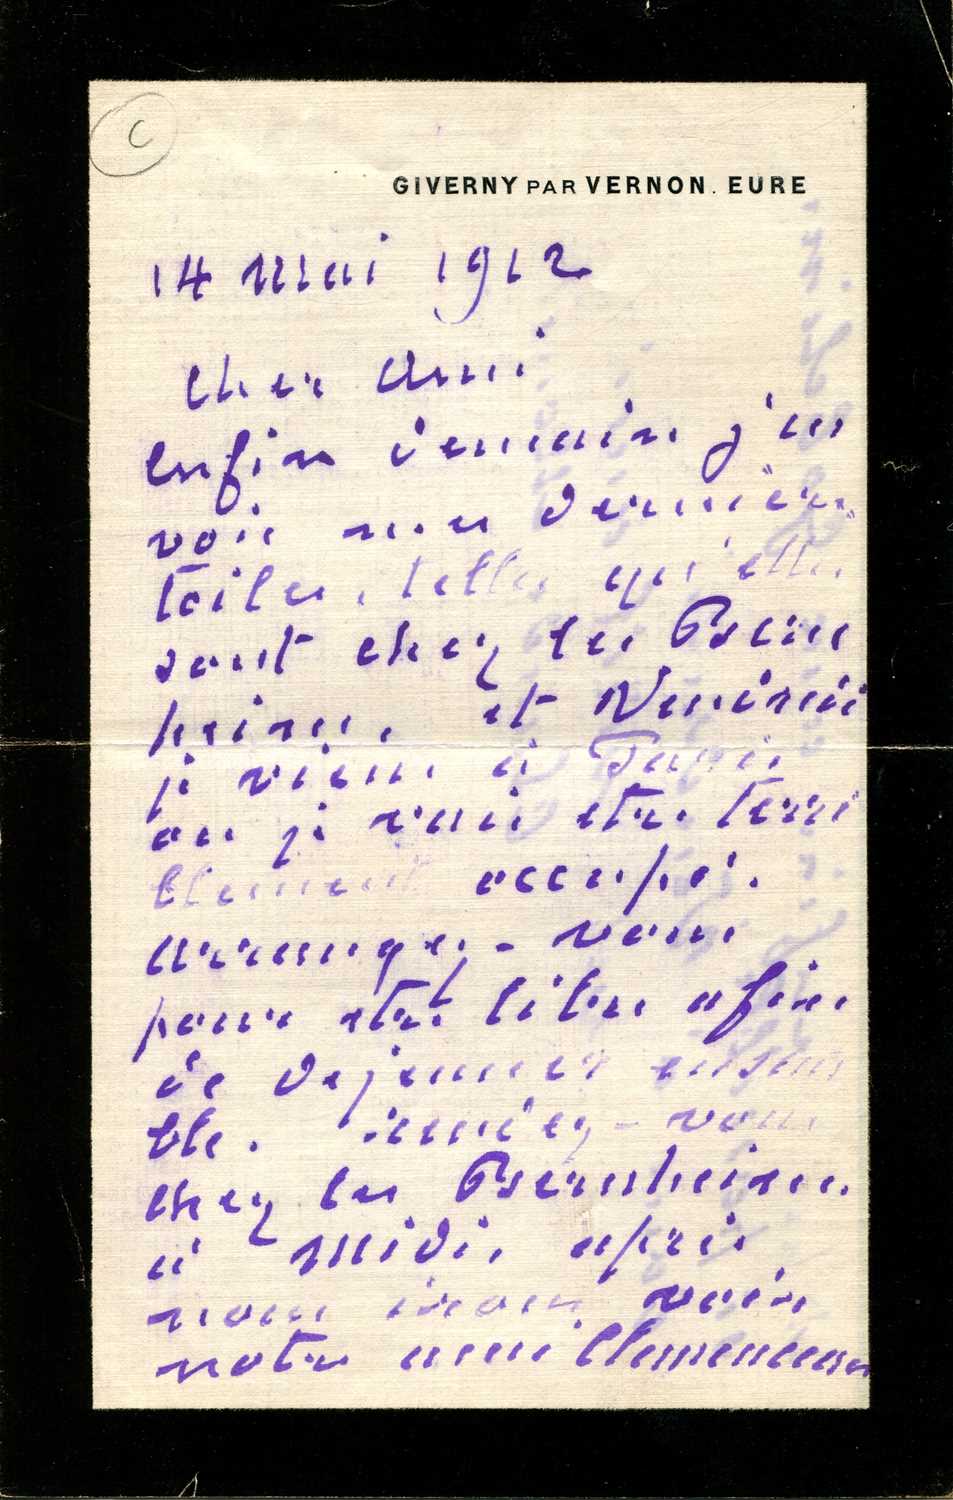 C
GIVERNY PAR VERNON. EURE
14 mai 1912
Cher Ami
enfin demain j'en
vois mes dernières
toiles, telles qu'elles
sont chez les Bern
heim, et Vendredi
je viens à Paris
ou je vais etre terri
blement occupé.
arrangez-vous
pour etre libre afin
de dejeuner ensem
ble. 
chez les Bernheim
à midi, après
nous irons voir
notre ami Clemenceau